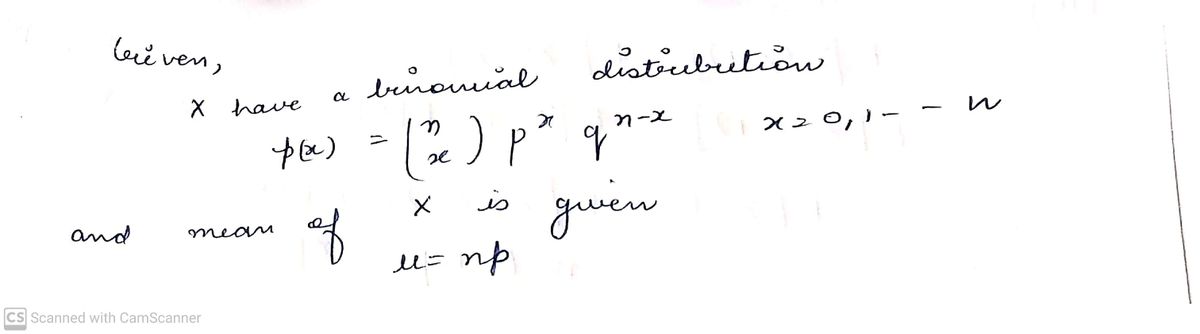 Given,
X have a binomial distribution
p(x) = (n x) p^x q^n-x x = 0, 1 - - n
and mean of X is given
μ = np
CS Scanned with CamScanner